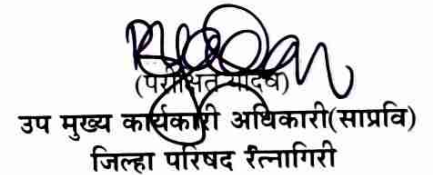 (परीक्षित यादव)
उप मुख्य कार्यकारी अधिकारी(साप्रवि)
जिल्हा परिषद रत्नागिरी